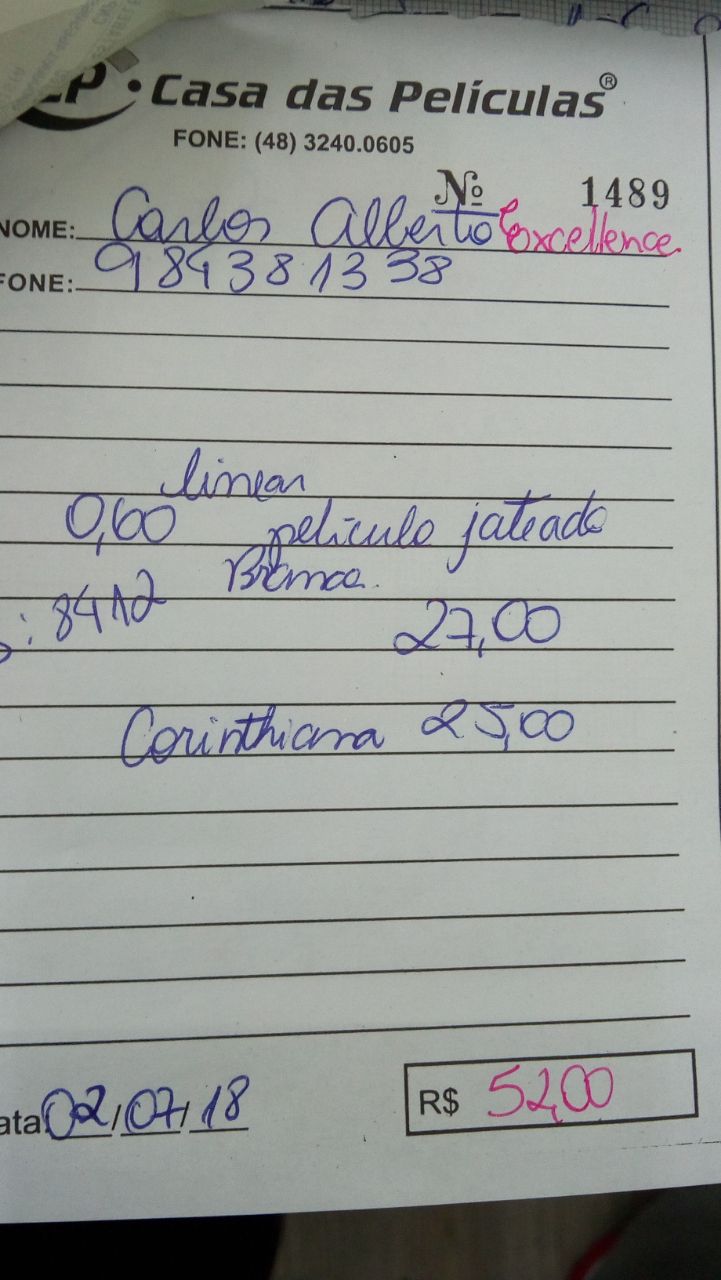 CP • Casa das Películas®
FONE: (48) 3240.0605
Nº 1489
NOME: Carlos Alberto Excellence
FONE: 984381338
linear
0,60 pelicula jateado
Branca.
: 8412
27,00
Corinthiana 25,00
ata 02/07/18
R$ 52,00